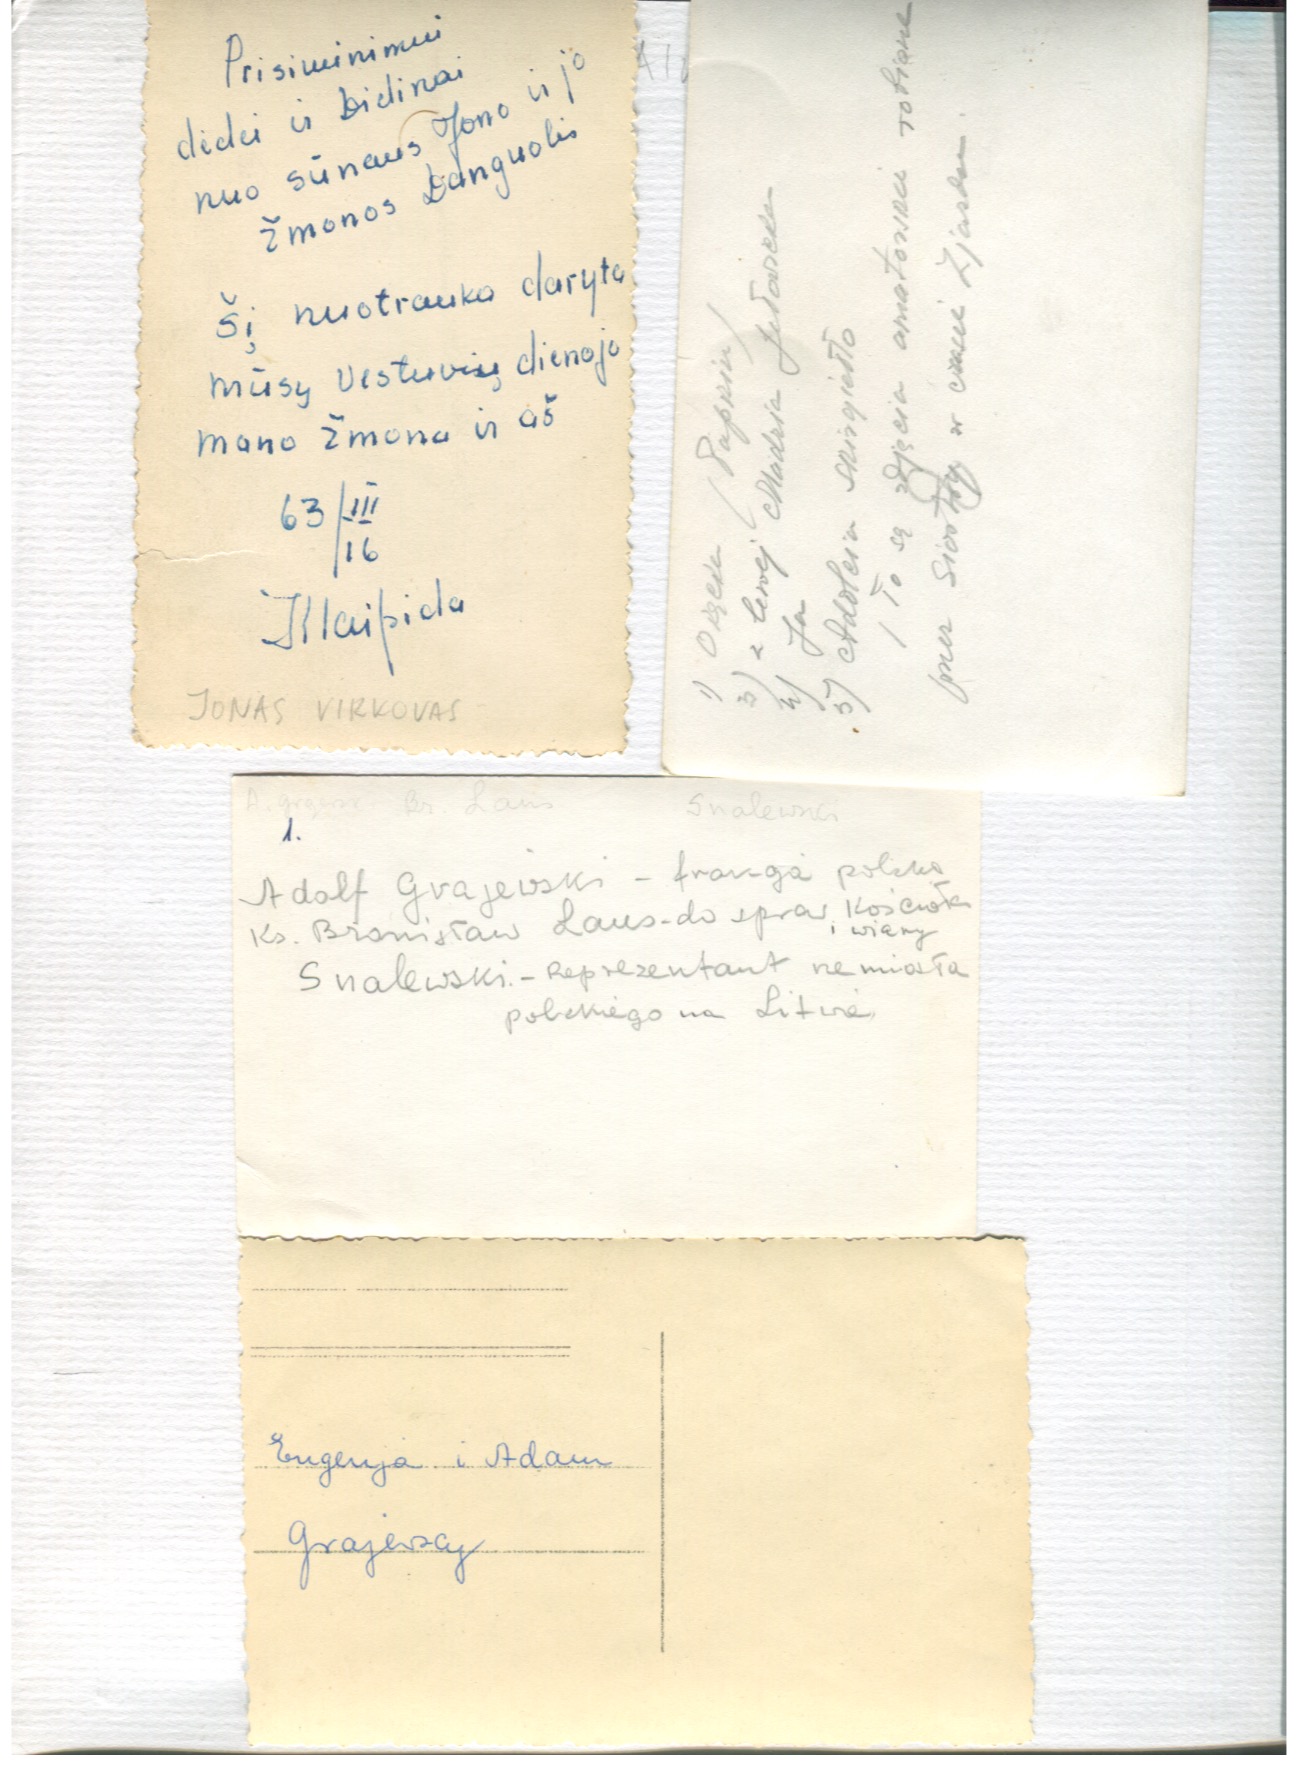 Prisiminimui
didei ir didinai
nuo sūnaus Jono ir jo
žmonos Danguolis
Šį nuotrauka daryta
mūsų vestuvių dienoje
mano žmona ir aš
63/III
16
Klaipida
JONAS VIRKOVAS
1)
3) z lewej Madzia
4) Ja
5) Adolcia
/ To są zdjęcia amatorski robione
przez Siostry w czasie Zjazdu.
Br. Laus Snalewski
1.
Adolf Grajewski - polska
Ks. Bronisław Laus - do spraw Kościoła
i wiary
Snalewski - Reprezentant
polskiego na Litwie
Eugenja i Adam
Grajewscy